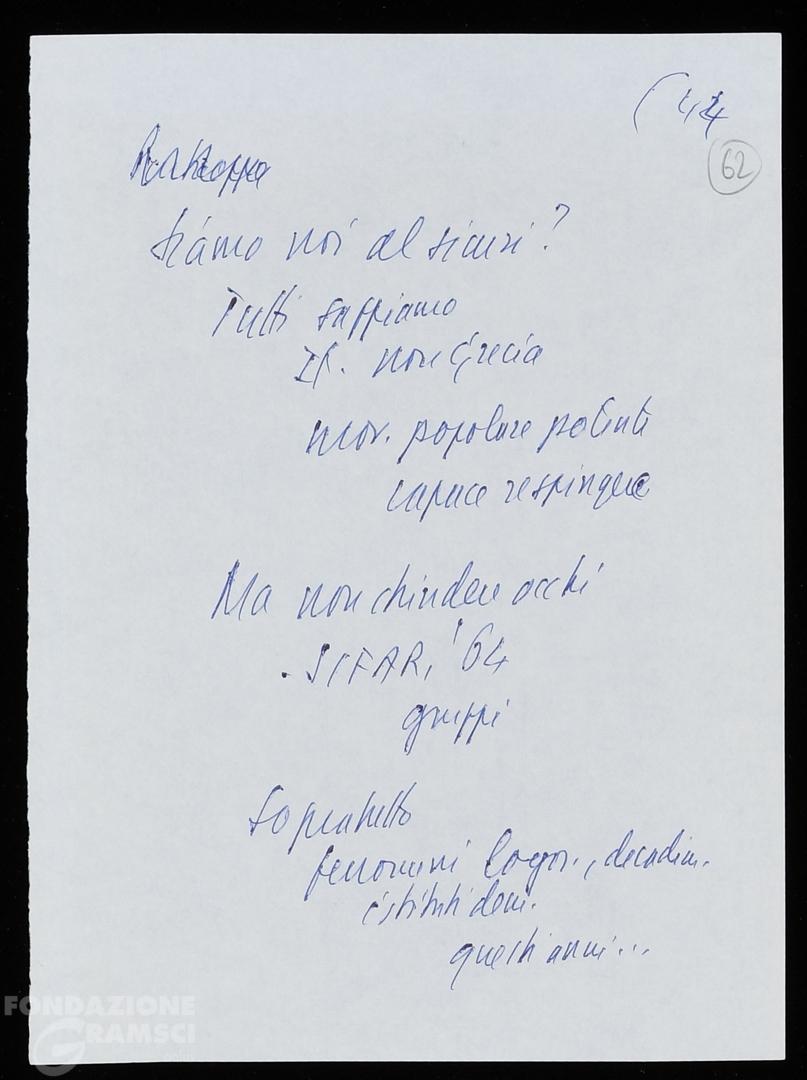 ( 44
62
Siamo noi al sicuri?
Tutti sappiamo
It. non Grecia
mov. popolare potente
capace respingere
Ma non chiudere occhi
. SIFAR, '64
gruppi
Sopratutto
fenomeni logor., decadim.
istituti dem.
questi anni...
FONDAZIONE
GRAMSCI